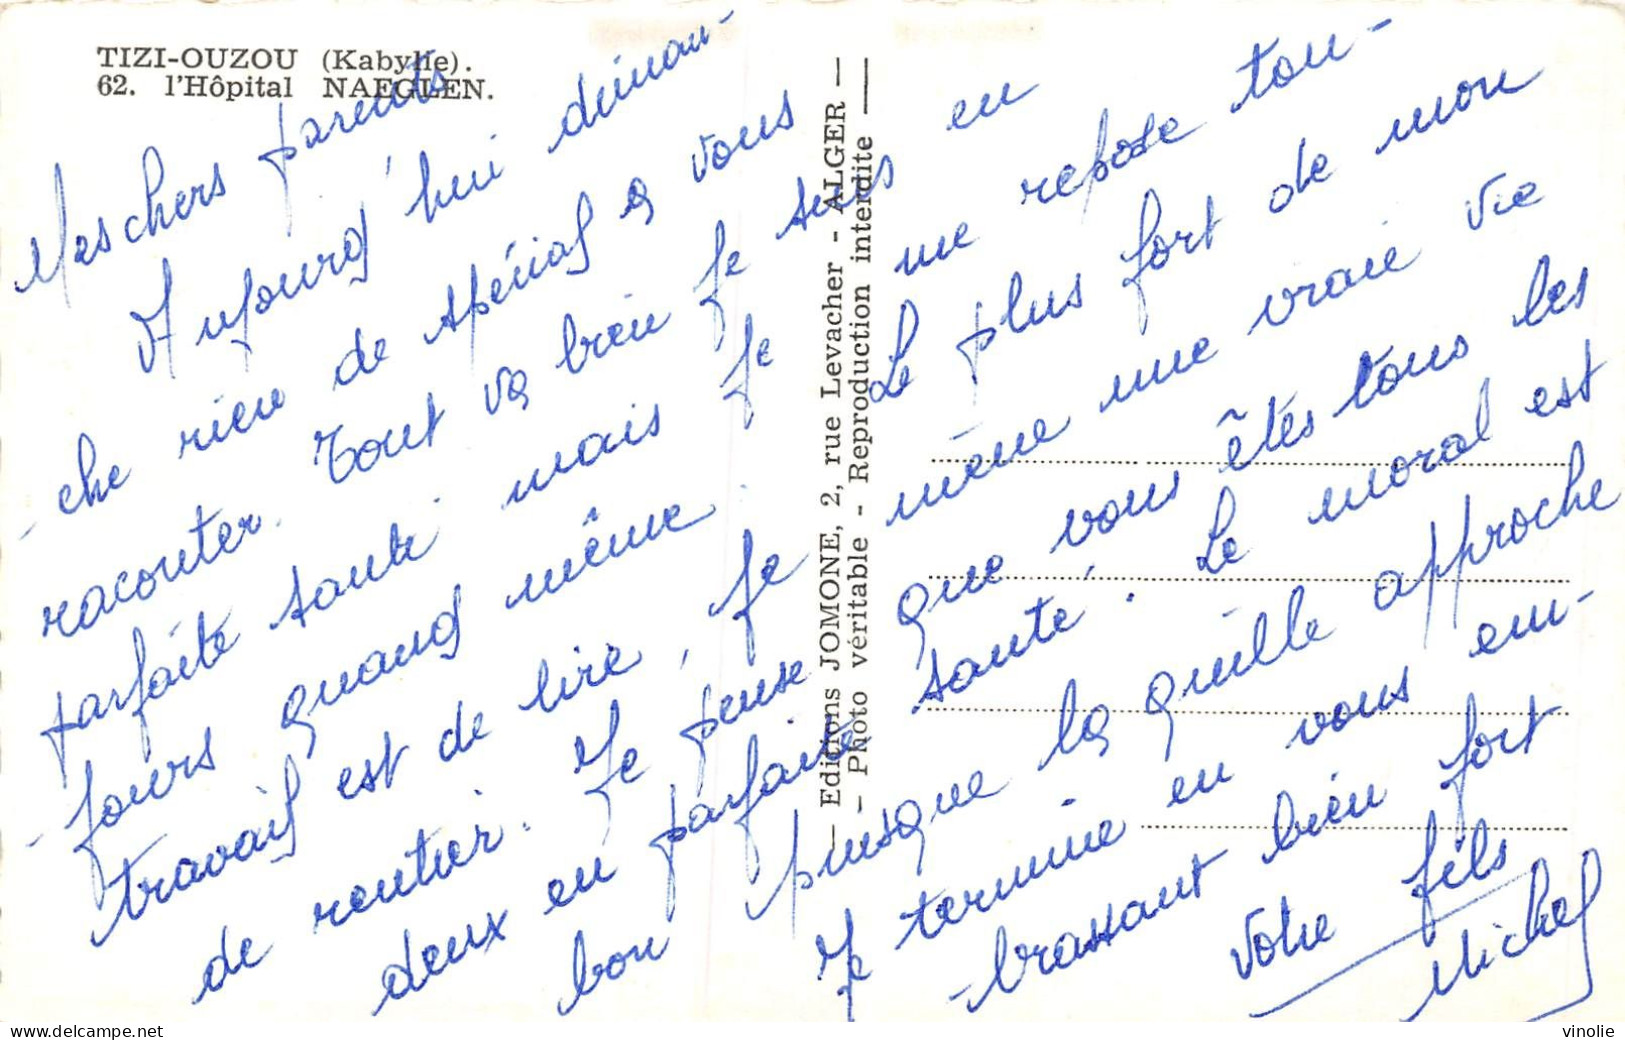 TIZI-OUZOU (Kabylie).
62. l'Hôpital NAEGLEN.
Mes chers parents
Aujourd'hui diman-
-che rien de spécial a vous
raconter. Tout va bien je suis en
parfaite santé mais je me repose tou-
-jours quand même. Le plus fort de mon
travail est de lire, je mène une vraie vie
de rentier. Je pense que vous êtes tous les
deux en parfaite santé. Le moral est
bon puisque la quille approche
Je termine en vous em-
-brassant bien fort
Votre fils
Michel
— Editions JOMONE, 2, rue Levacher - ALGER —
— Photo véritable - Reproduction interdite —
vinolie